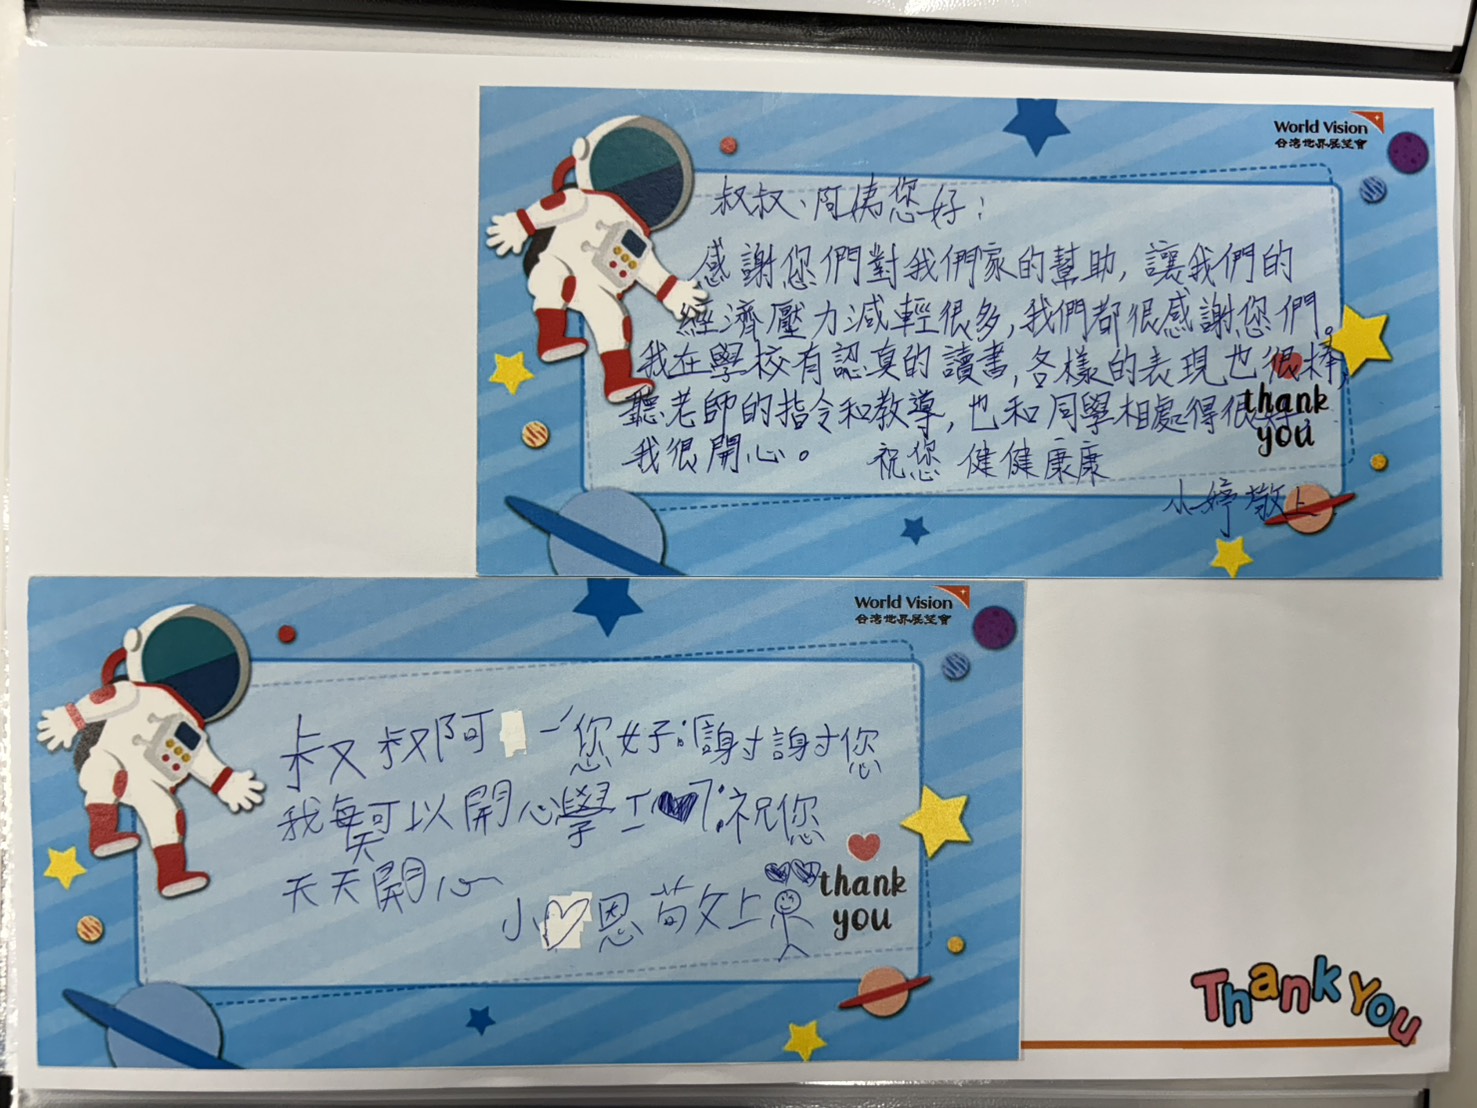 World Vision
台灣世界展望會
叔叔、阿姨您好：
感謝您們對我們家的幫助，讓我們的
經濟壓力減輕很多，我們都很感謝您們。
我在學校有認真的讀書，各樣的表現也很棒，
聽老師的指令和教導，也和同學相處得很好，
我很開心。 祝您 健健康康
小婷敬上
thank
you
World Vision
台灣世界展望會
叔叔阿一ˊ您好：謝謝您
我每天可以開心學ㄒ 祝您
天天開心
小 恩敬上
thank
you
Thank You